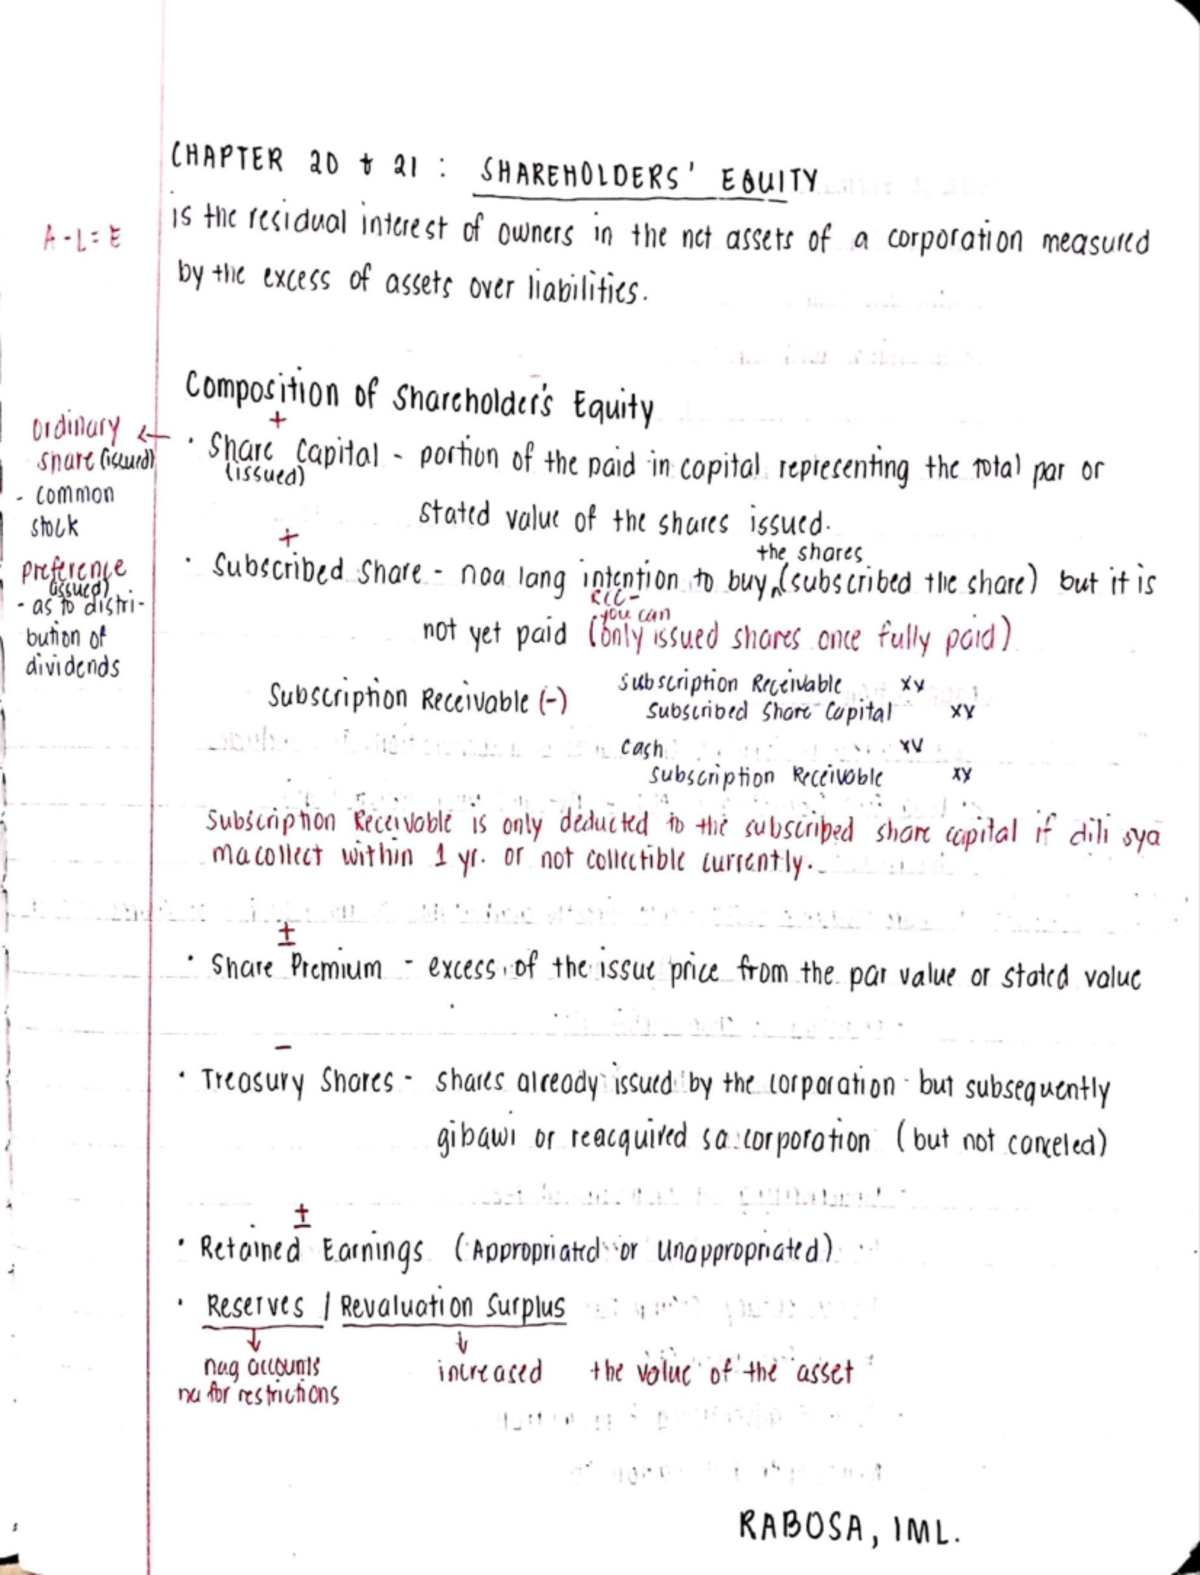 CHAPTER 20 & 21 : SHAREHOLDERS' EQUITY
A - L = E
is the residual interest of owners in the net assets of a corporation measured
by the excess of assets over liabilities.
Composition of Shareholder's Equity
+
ordinary ←
share (issued)
- common
stock
preference
(issued)
- as to distri-
bution of
dividends
· Share Capital - portion of the paid in capital representing the total par or
(issued)
stated value of the shares issued.
+
the shares
· Subscribed Share - naa lang intention to buy, (subscribed the share) but it is
you can
not yet paid (only issued shares once fully paid)
Subscription Receivable (-)
Subscription Receivable xx
Subscribed Share Capital xx
Cash xx
Subscription Receivable xx
Subscription Receivable is only deducted to the subscribed share capital if dili sya
macollect within 1 yr. or not collectible currently.
±
· Share Premium - excess of the issue price from the par value or stated value
–
· Treasury Shares - shares already issued by the corporation but subsequently
gibawi or reacquired sa corporation (but not canceled)
±
· Retained Earnings (Appropriated or Unappropriated)
· Reserves / Revaluation Surplus
↓ ↓
nag accounts increased the value of the asset
na for restrictions
RABOSA, IML.